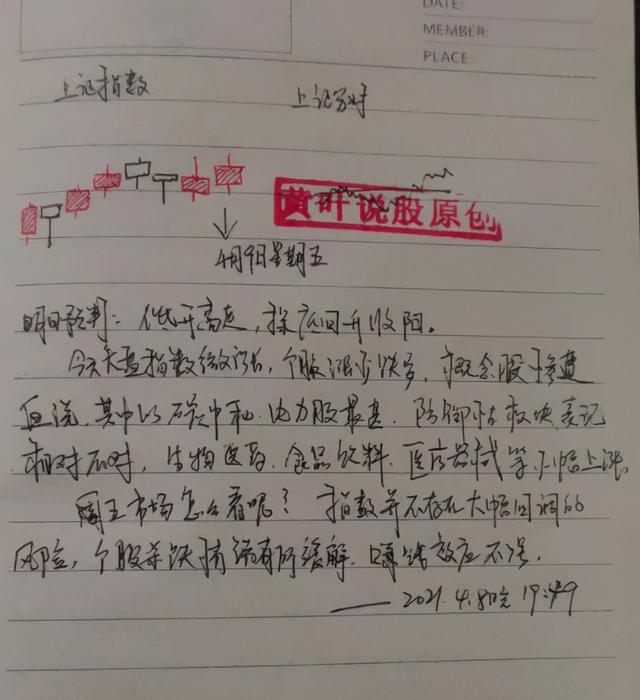 DATE:
MEMBER:
PLACE
上证指数 上证分时
黄叶说股原创
4月9日星期五
明日预判：低开高走，探底回升收阳。
今天大盘指数微涨，个股涨少跌多，概念股惨遭
血洗，其中以碳中和、电力股最甚，防御性板块表现
相对不错，生物医药、食品饮料、医疗器械等小幅上涨。
周五市场怎么看呢？指数并不存在大幅回调的
风险，个股杀跌情绪有所缓解，赚钱效应不错。
——2021.4.8日 19:49